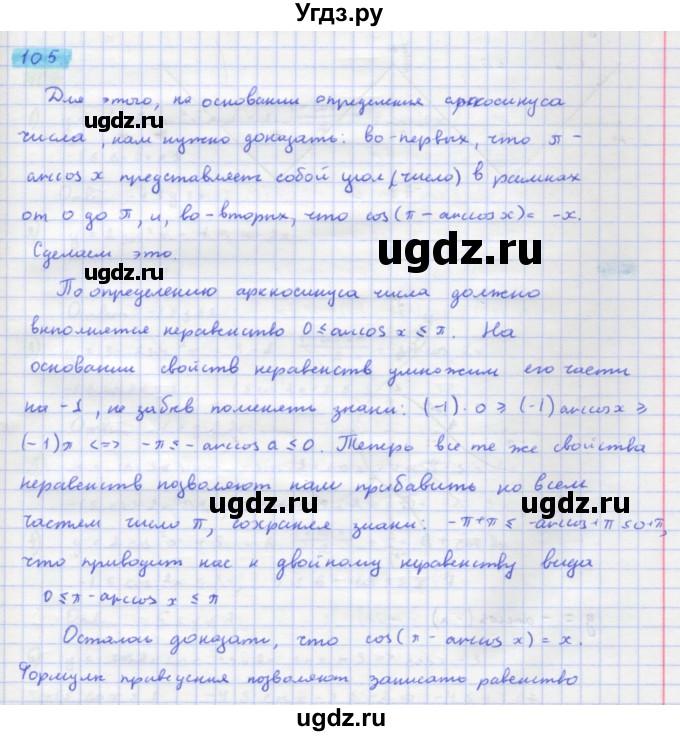 Угдз.ру
105
Для этого, на основании определения арккосинуса
числа, нам нужно доказать: во-первых, что π -
arccos x представляет собой угол (число) в рамках
от 0 до π, и, во-вторых, что cos(π - arccos x) = -x.
Сделаем это.
По определению арккосинуса числа должно
выполнятся неравенство 0 ≤ arccos x ≤ π. На
основании свойств неравенств умножим его части
на -1, не забыв поменять знаки: (-1)·0 ≥ (-1)arccos x ≥
(-1)π <=> -π ≤ -arccos a ≤ 0. Теперь все те же свойства
неравенств позволяют нам прибавить ко всем
частям число π, сохраняя знаки: -π+π ≤ -arccos+π ≤ 0+π,
что приводит нас к двойному неравенству вида
0 ≤ π - arccos x ≤ π
Осталось доказать, что cos(π - arccos x) = x.
Формулы приведения позволяют записать равенство
ugdz.ru
ugdz.ru
ugdz.ru
ugdz.ru
ugdz.ru
ugdz.ru
ugdz.ru
ugdz.ru